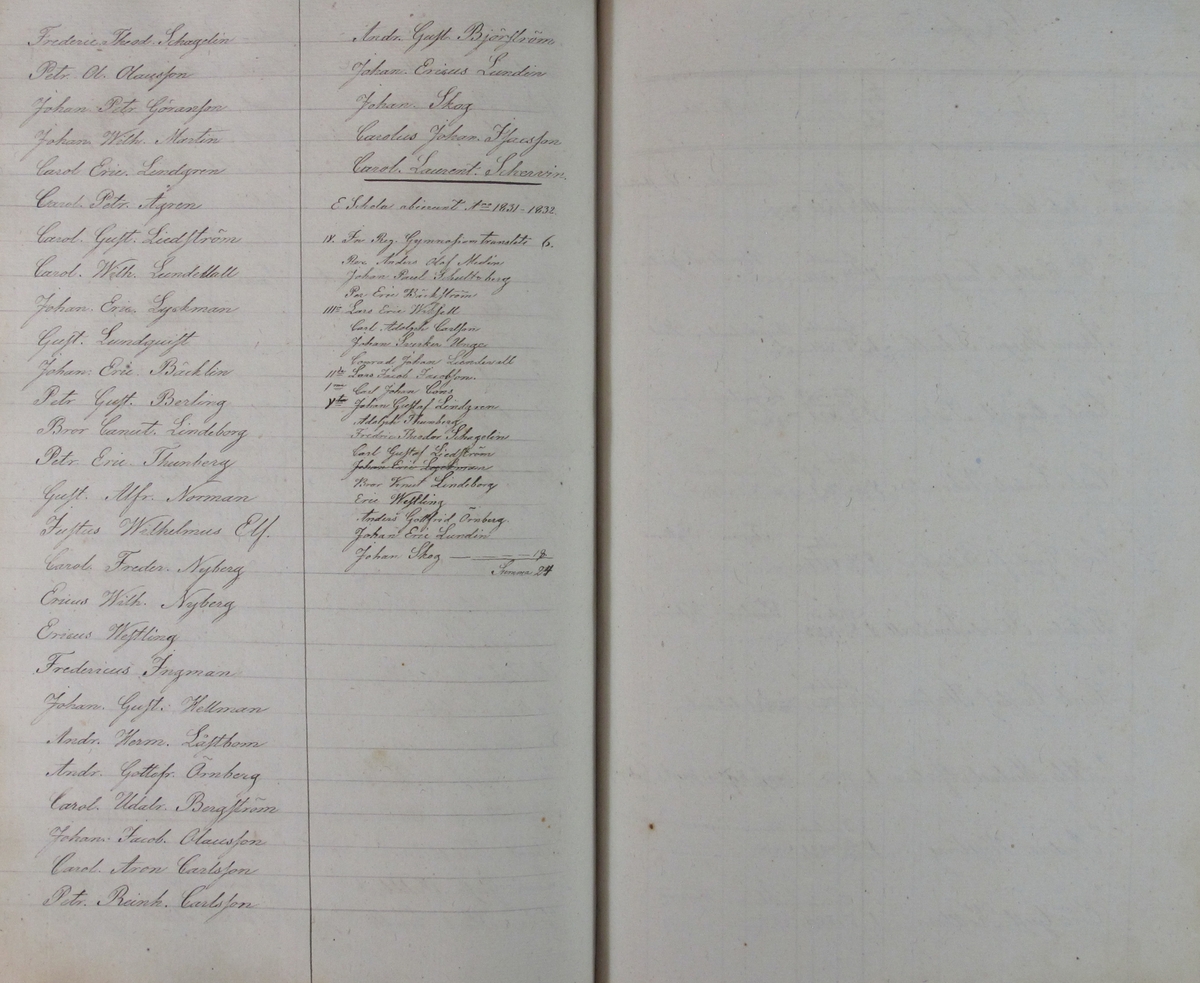 Frederic. Theod. Schagelin
Petr. Ol. Olausson
Johan. Petr. Göransson
Johan. Wilh. Martin
Carol. Eric. Lindgren
Carol. Petr. Ågren
Carol. Gust. Liedström
Carol. Wilh. Lundewall
Johan. Eric. Lyckman
Gust. Lundquist
Johan. Eric. Bäcklin
Petr. Gust. Berling
Bror Canut. Lindeborg
Petr. Eric. Thunberg
Gust. Alfr. Norman
Justus Wilhelmus Elf.
Carol. Freder. Nyberg
Ericus Wilh. Nyberg
Ericus Westling
Fredericus Ingman
Johan. Gust. Hellman
Andr. Herm. Låstbom
Andr. Gottfr. Örnberg
Carol. Udalr. Bergström
Johan. Jacob. Olausson
Carol. Aron Carlsson
Petr. Reinh. Carlsson
Andr. Gust. Björström
Johan. Ericus Lundin
Johan. Skog
Carolus Johan. Isacsson
Carol. Laurent. Schervin.
E Schola abierunt Ano 1831-1832.
Reg. Gymnasium 6.
Anders Olof Medin
Johan Paul Schultzberg
Per Eric Bäckström
Lars Eric
Carl Adolph Carlson
Johan Sverker Unge
Conrad Johan
Lars Jacob Jacobson.
Carl Johan
Johan Gustaf Lindgren
Adolph Thunberg
Fredric Theodor Schagelin
Carl Gustaf Liedström
Johan Eric Lyckman
Bror Knut Lindeborg
Eric Westling
Anders Gottfrid Örnberg.
Johan Eric Lundin
Johan Skog — — — 18
Summa 24